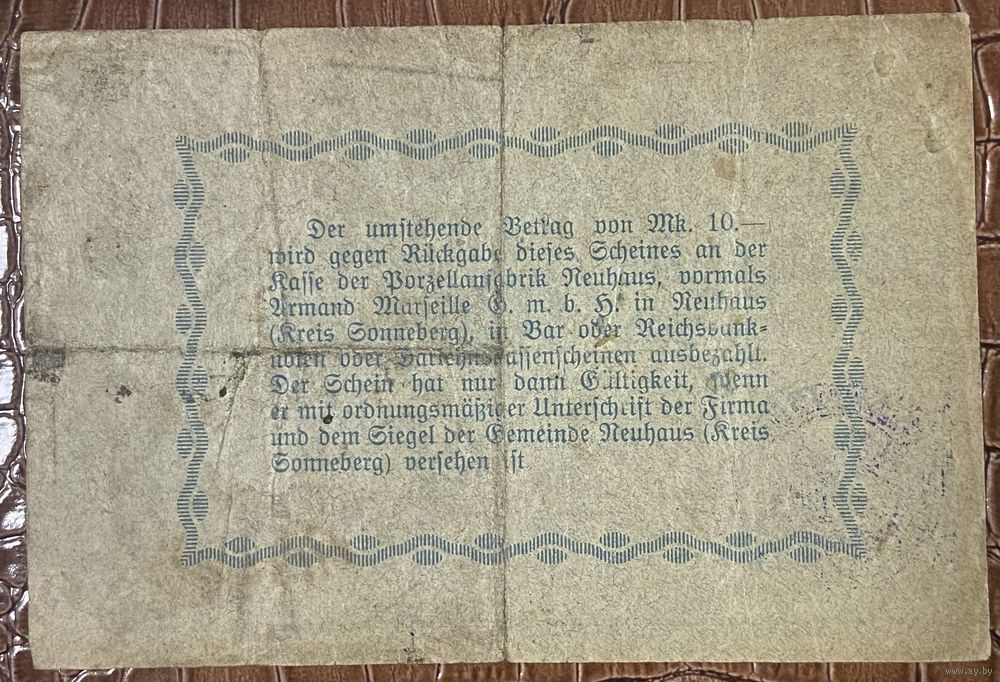 Der umstehende Betrag von Mk. 10.—
wird gegen Rückgabe dieses Scheines an der
Kasse der Porzellanfabrik Neuhaus, vormals
Armand Marseille G. m. b. H. in Neuhaus
(Kreis Sonneberg), in Bar oder Reichsbank-
noten oder Darlehnskassenscheinen ausbezahlt.
Der Schein hat nur dann Gültigkeit, wenn
er mit ordnungsmäßiger Unterschrift der Firma
und dem Siegel der Gemeinde Neuhaus (Kreis
Sonneberg) versehen ist
www.ay.by